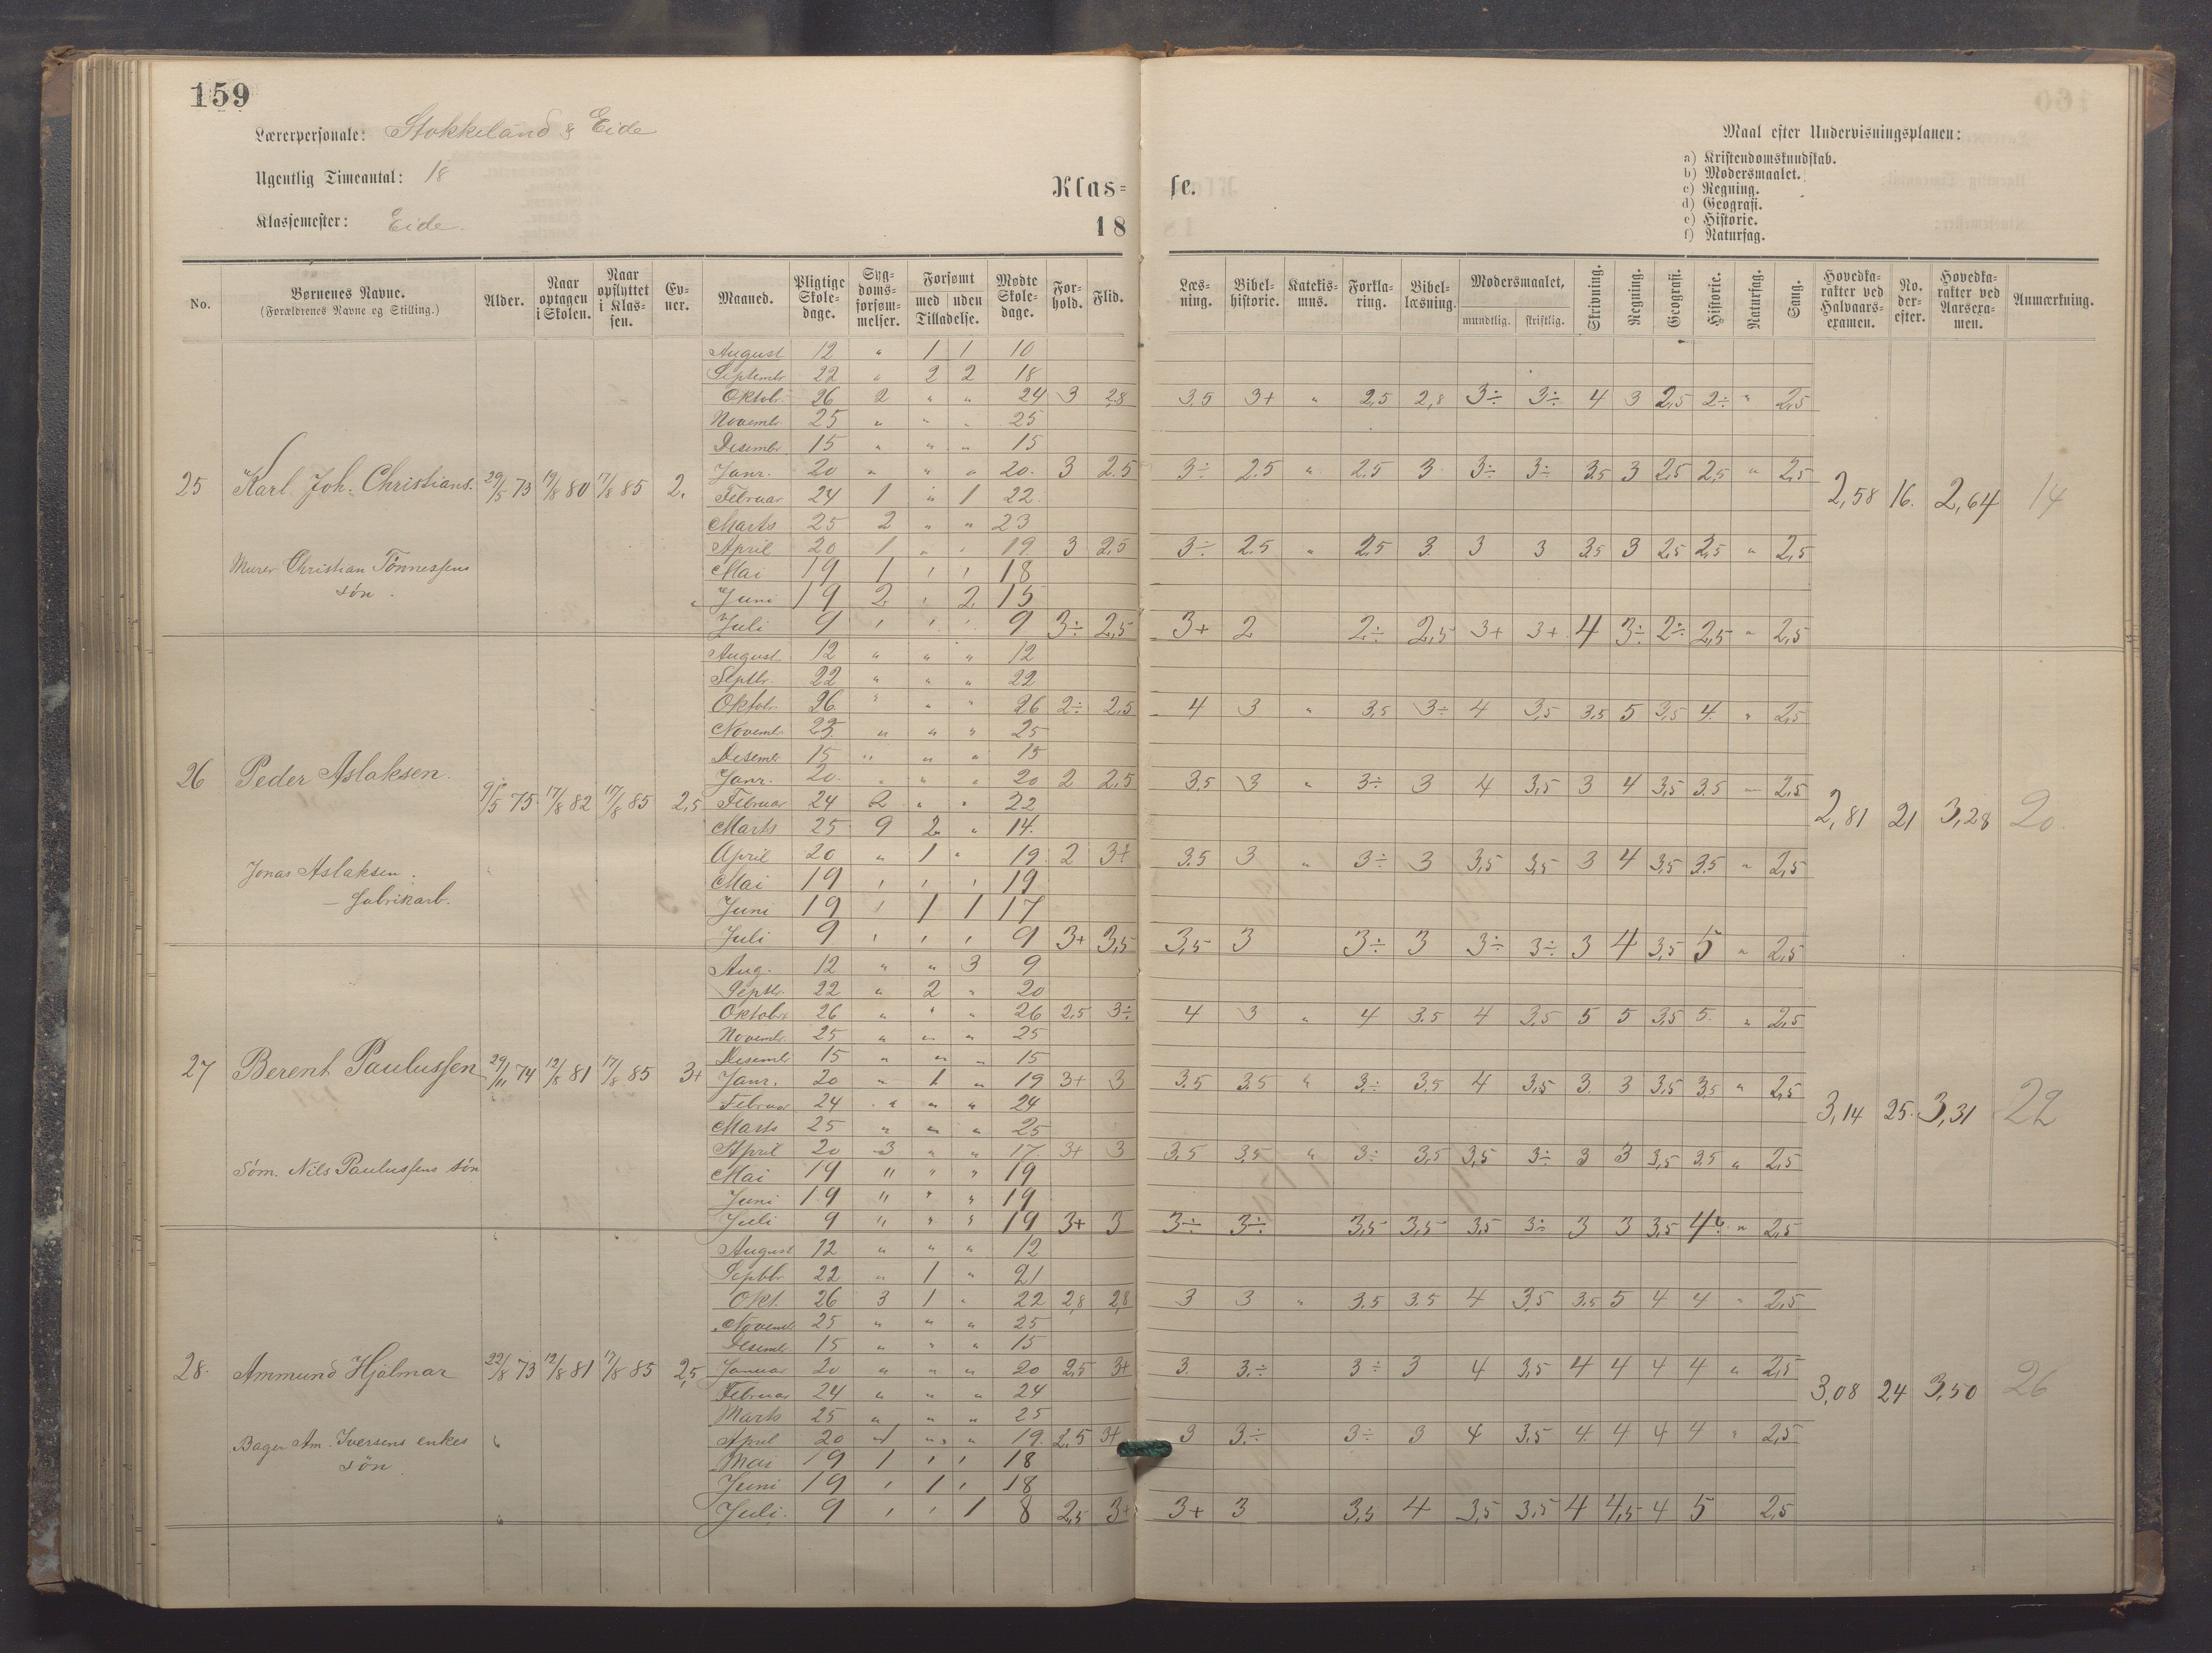 159
Lærerpersonale: Stokkeland & Eide
Ugentlig Timeantal: 18
Klassemester: Eide.
Klas= se.
18
Maal efter Undervisningsplanen:
a) Kristendomskundskab.
b) Modersmaalet.
c) Regning.
d) Geografi.
e) Historie.
f) Naturfag.
No. Børnenes Navne. (Forældrenes Navne og Stilling.) Alder. Naar optagen i Skolen. Naar opflyttet i Klassen. Evner. Maaned. Pligtige Skoledage. Sygdomsforsømmelser. Forsømt med uden Tilladelse. Mødte Skoledage. Forhold. Flid. Læsning. Bibelhistorie. Katekismus. Forklaring. Bibellæsning. Modersmaalet, mundtlig. skriftlig. Skrivning. Regning. Geografi. Historie. Naturfag. Sang. Hovedkarakter ved Halvaarsexamen. No. derefter. Hovedkarakter ved Aarsexamen. Anmærkning.
August 12 " 1 1 10
Septembr 22 " 2 2 18
Oktobr. 26 2 " " 24 3 2,8 3,5 3+ " 2,5 2,8 3÷ 3÷ 4 3 2,5 2÷ " 2,5
Novembr 25 " " " 25
Desembr. 15 " " " 15
Janr. 20 " " " 20. 3 2.5 3÷ 2.5 " 2.5 3 3÷ 3÷ 3.5 3 2,5 2,5 " 2,5
25 Karl Joh. Christians. 29/5 73 19/8 80 17/8 85 2. 2,58 16. 2,64 14
Februar 24 1 " 1 22
Marts 25 2 " " 23
April 20 1 " " 19. 3 2,5 3÷ 2.5 " 2.5 3 3 3 3.5 3 2,5 2,5 " 2,5
Murer Christian Tönnessens
søn.
Mai 19 1 ' ' 18
Juni 19 2 ' 2 15
Juli 9 ' ' ' 9 3÷ 2,5 3+ 2 2÷ 2,5 3+ 3+ 4 3÷ 2÷ 2,5 " 2,5
August 12 " " " 12
Septbr. 22 " " " 22
Oktobr. 26 " " " 26 2÷ 2,5 4 3 " 3,5 3÷ 4 3,5 3,5 5 3,5 4 " 2,5
Novembr 25 " " " 25
Desembr 15 " " " 15
Janr. 20. " " " 20 2 2,5 3.5 3 " 3÷ 3 4 3,5 3 4 3,5 3.5 " 2,5
26 Peder Aslaksen. 9/5 75 17/8 82 17/8 85 2,5 2,81 21 3,28 20
Februar 24 2 " " 22
Marts 25 9 2 " 14.
April 20 " 1 " 19 2 3+ 3.5 3 " 3÷ 3 3,5 3,5 3 4 3,5 3.5 " 2,5
Jonas Aslaksen.
— fabrikarb.
Mai 19 ' ' ' 19
Juni 19 ' 1 1 17
Juli 9 ' ' ' 9 3+ 3,5 3,5 3 3÷ 3 3÷ 3÷ 3 4 3,5 5 " 2,5
Aug. 12 " " 3 9
Septbr. 22 " 2 " 20
Oktobr 26 " " " 26 2,5 3÷ 4 3 " 4 3.5 4 3,5 5 5 3,5 5. " 2,5
Novembr. 25 " " " 25
Desembr 15 " " " 15
27 Berent Paulussen 29/11 74 12/8 81 17/8 85 3+ 3,14 25. 3,31 22
Janr. 20 " 1 " 19 3+ 3 3.5 3.5 " 3÷ 3.5 4 3,5 3 3 3,5 3,5 " 2,5
Februar 24 " " " 24
Marts 25 " " " 25
April 20 3 " " 17. 3+ 3 3.5 3.5 " 3÷ 3,5 3,5 3÷ 3 3 3,5 3.5 " 2,5
Søm. Nils Paulussens søn
Mai 19 " " " 19
Juni 19 " " " 19
Juli 9 " " " 19 3+ 3 3÷ 3÷ 3,5 3,5 3,5 3÷ 3 3 3,5 4 " 2,5
August 12 " " " 12
Septbr. 22 " 1 " 21
Okt. 26 3 1 " 22 2,8 2,8 3 3 " 3.5 3.5 4 3,5 3.5 5 4 4 " 2,5
Novemb 25 " " " 25
Desembr 15 " " " 15
28. Ammund Hjalmar 22/8 73 12/8 81 17/8 85 2,5 3,08 24 3,50 26
Januar 20 " " " 20 2,5 3+ 3. 3.÷ 3÷ 3 4 3,5 4 4 4 4 " 2,5
Februar 24 " " " 24
Marts 25 " " " 25
April 20 1 " " 19. 2,5 3+ 3 3.÷ 3÷ 3 4 3,5 4. 4 4 4 " 2,5
Bager Am. Iversens enkes
søn
Mai 19 1 ' ' 18
Juni 19 ' 1 ' 18
Juli. 9 ' ' 1 8 2,5 3+ 3+ 3 3,5 4 3,5 3,5 4 4,5 4 5 2,5